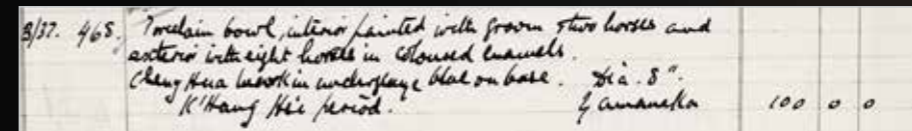 3/37. 468. Porcelain bowl, interior painted with groom & two horses and
exterior with eight horses in coloured enamels.
Cheng Hua mark in underglaze blue on base. Dia. 8".
K'Hang Hsi period. Yamanaka 100 0 0